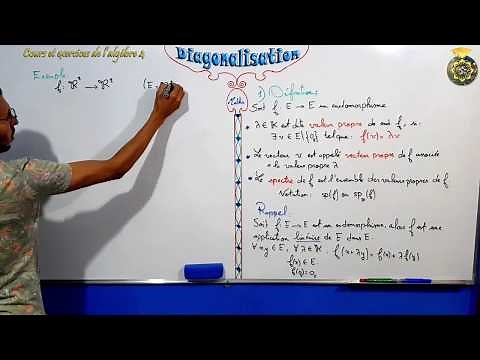 Cours et exercices de l'algèbre 4
Diagonalisation
Exemple
f: ℝ² → ℝ² (E =
1) Définitions
Soit f: E → E un endomorphisme
• λ ∈ K est dite valeur propre de f
∃ v ∈ E\{0} tel que: f(v) = λv
• Le vecteur v est appelé vecteur propre de f associé
à la valeur propre λ
• Le spectre de f est l'ensemble des valeurs propres de f
Notation: sp(f) ou
Rappel
Soit f: E → E est un endomorphisme, alors f est une
application linéaire de E dans E.
∀ x,y ∈ E, ∀ λ ∈ K: f(x+λy) = f(x) + λf(y)
f(x) ∈ E